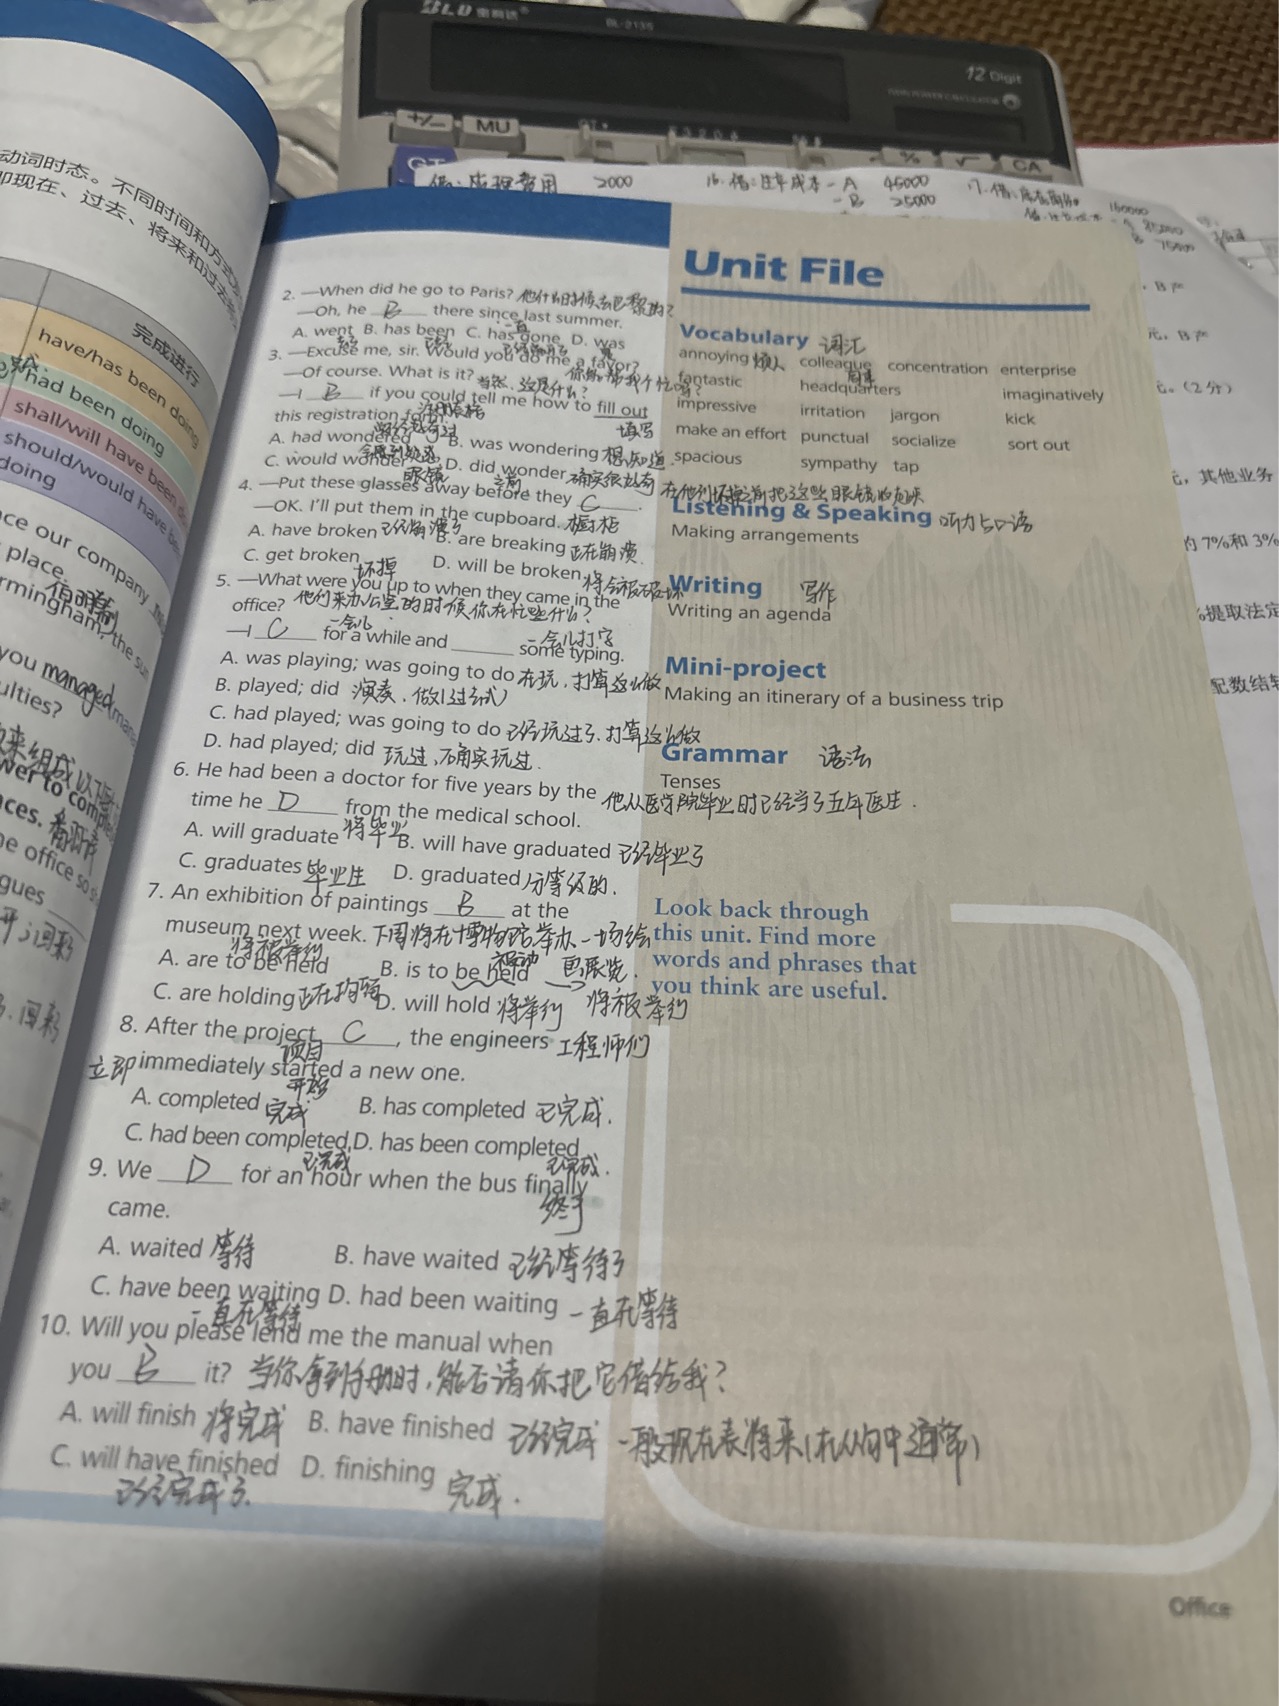 BLD
BL-2135
12 Digit
+/- MU
GT % √ CA
2000 16.借:生产成本-A 45000
-B 25000
动词时态。不同时间和方式
即现在、过去、将来和过去将
完成进行
have/has been doing
had been doing
shall/will have been
should/would have
doing
nce our company
place.
rmingham, the su
you managed
ulties?
wer to comple
nces.
e office so s
gues
2. —When did he go to Paris? 他什么时候去巴黎的?
—Oh, he B there since last summer.
一直
A. went B. has been C. has gone D. was
3. —Excuse me, sir. Would you do me a favor?
—Of course. What is it? 当然,这是什么?
—I B if you could tell me how to fill out
this registration form. 填写
A. had wondered B. was wondering 想知道.
C. would wonder D. did wonder 确实很好奇
眼镜 之前
4. —Put these glasses away before they C. 在他们坏掉之前把这些眼镜收起来
—OK. I'll put them in the cupboard. 橱柜
A. have broken 已经崩溃了 B. are breaking 正在崩溃.
C. get broken 坏掉 D. will be broken 将会被破坏
5. —What were you up to when they came in the
office? 他们来办公室的时候你在忙些什么?
一会儿 一会儿打字
—I C for a while and some typing.
A. was playing; was going to do 在玩,打算这么做
B. played; did 演奏.做(过去式)
C. had played; was going to do 已经玩过了.打算这么做
D. had played; did 玩过,确实玩过.
6. He had been a doctor for five years by the
time he D from the medical school. 他从医学院毕业时已经当了五年医生.
A. will graduate 将毕业 B. will have graduated 已经毕业了
C. graduates 毕业生 D. graduated 分等级的.
7. An exhibition of paintings B at the
museum next week. 下周将在博物馆举办一场绘
将被举行 被动
A. are to be held B. is to be held 画展览.
C. are holding D. will hold 将举行 将被举行
8. After the project C, the engineers 工程师们
项目
立即 immediately started a new one.
开始
A. completed 完成 B. has completed 已完成.
C. had been completed D. has been completed
已完成 已完成.
9. We D for an hour when the bus finally
终于
came.
A. waited 等待 B. have waited 已经等待了
C. have been waiting D. had been waiting 一直在等待
一直在等待
10. Will you please lend me the manual when
you B it? 当你拿到手册时,能否请你把它借给我?
A. will finish 将完成 B. have finished 已经完成 一般现在表将来(在从句中通常)
C. will have finished D. finishing 完成.
已经完成了.
Unit File
Vocabulary 词汇
annoying 烦人 colleague concentration enterprise
同事
fantastic headquarters imaginatively
impressive irritation jargon kick
make an effort punctual socialize sort out
spacious sympathy tap
Listening & Speaking 听力与口语
Making arrangements
Writing 写作
Writing an agenda
Mini-project
Making an itinerary of a business trip
Grammar 语法
Tenses
Look back through
this unit. Find more
words and phrases that
you think are useful.
Office
(2分)
其他业务
的7%和3%
提取法定